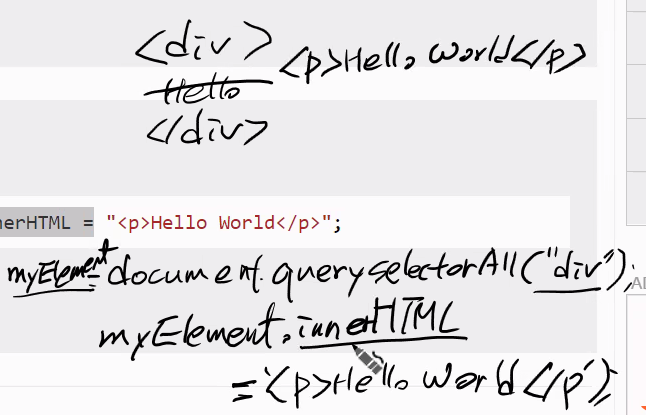 <div>
Hello <p>Hello World</p>
</div>
nerHTML = "<p>Hello World</p>";
myElement=document.querySelectorAll("div");
myElement.innerHTML
='<p>Hello World</p>';